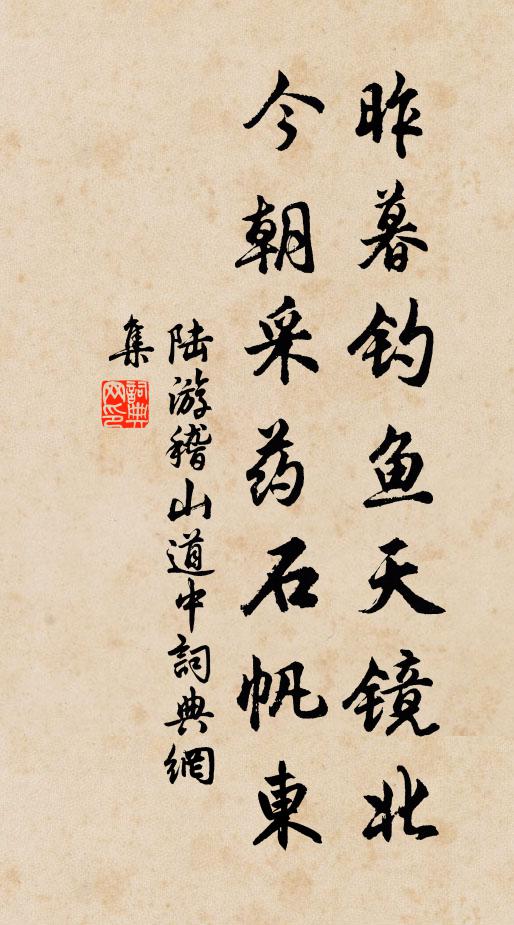 昨暮钓鱼天镜北
今朝采药石帆東
陆游稽山道中詞典網
集
詞典网印